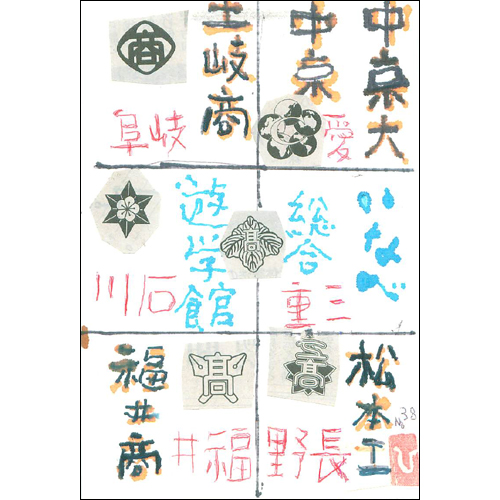 中京大
中京
愛
土岐商
商
岐阜
いなべ
総合
三重
髙
遊学館
石川
松本工
長野
高
福井商
福井
髙
No38
ひ